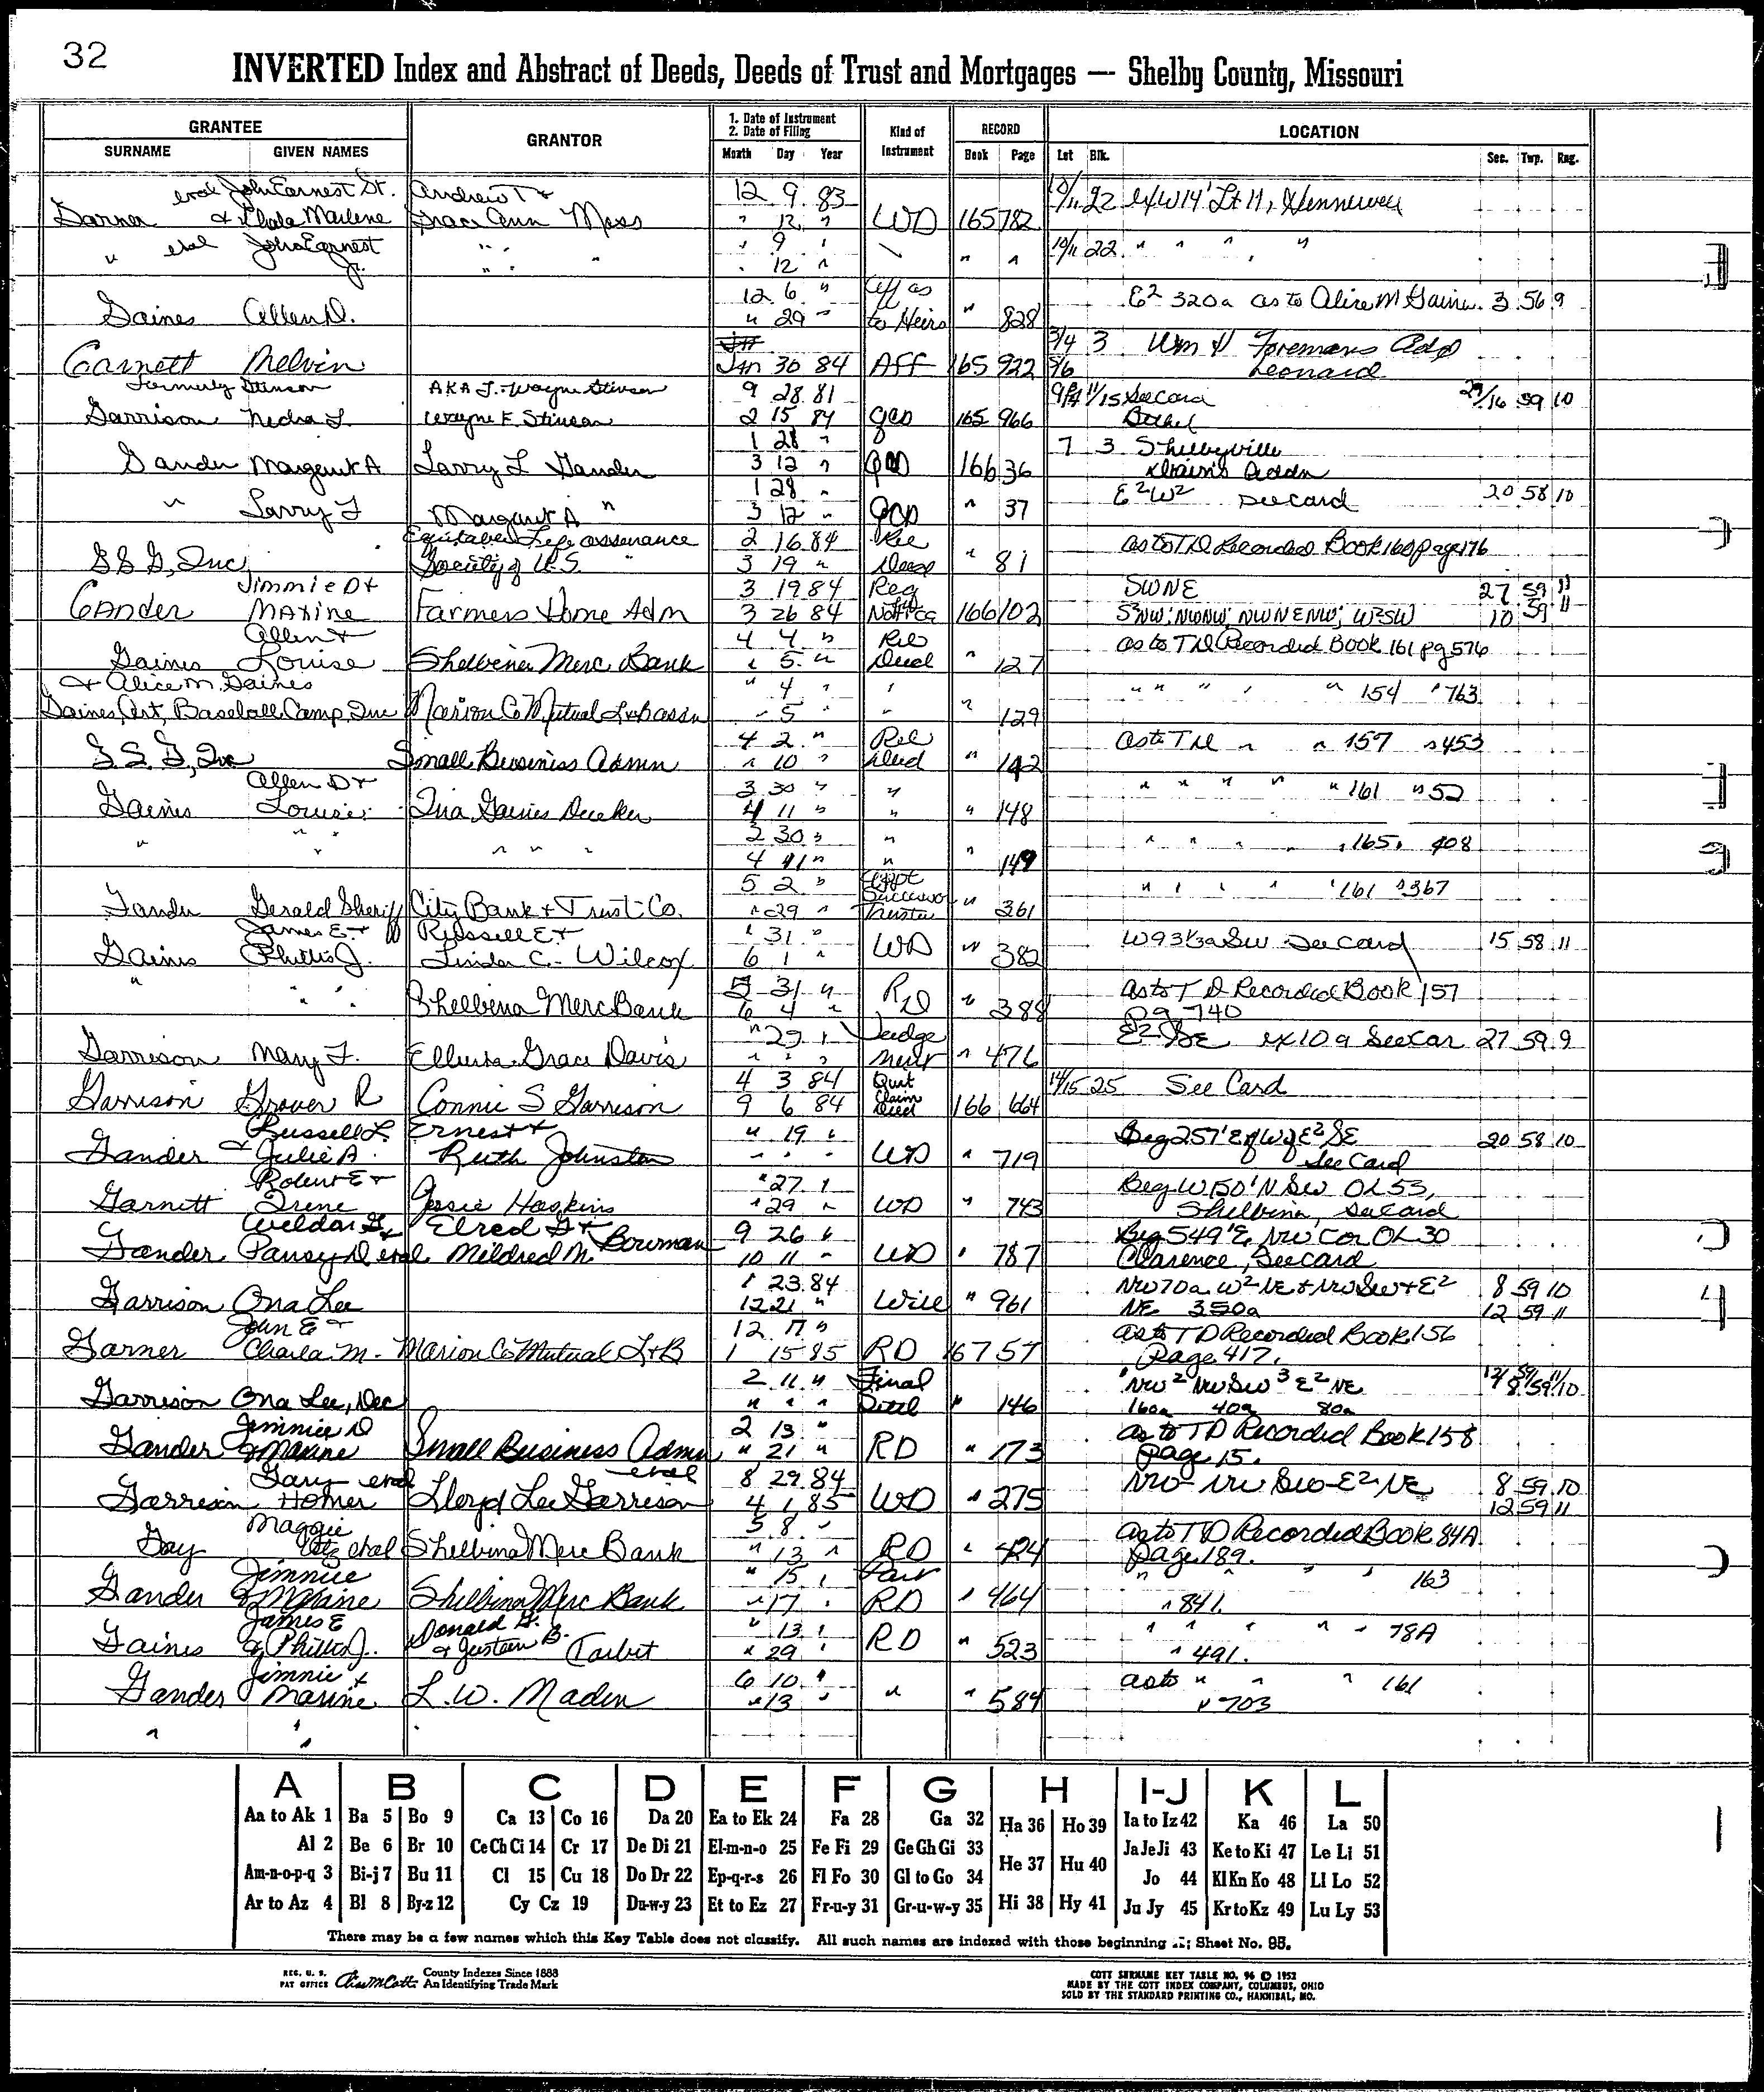 32
INVERTED Index and Abstract of Deeds, Deeds of Trust and Mortgages — Shelby County, Missouri
GRANTEE
SURNAME GIVEN NAMES
GRANTOR
1. Date of Instrument
2. Date of Filing
Month Day Year
Kind of Instrument
RECORD
Book Page
LOCATION
Lot Blk. Sec. Twp. Rng.
etal John Earnest Sr. Andrew T & 12 9 83 10/11 22 ex W14' Lt 11, Hunnewell
Garner & Marlene Grace Ann Moss " 12 " WD 165 782
" etal John Earnest " " " 9 " 10/11 22 " " " "
Jr. " " " " 12 " " "
12 6 " Aff as E2 320a as to Alice M Gaines 3 56 9
Gaines Allen D. " 29 " to Heirs " 828
3/4 3 Wm H Foremans Add
Garnett Melvin Jan 30 84 AFF 165 922 5/6 Leonard
Formerly Stinson AKA J. Wayne Stinson 9 28 81 See Card 59 10
Garrison Nedra L. Wayne F. Stinson 2 15 84 QCD 165 966 Bethel
1 28 " 7 3 Shelbyville
Gander Margaret A Larry L Gander 3 12 " QCD 166 36 Addn
1 28 " E2W2 See card 20 58 10
" Larry L Margaret A " 3 12 " QCD " 37
Equitable Life Assurance 2 16 84 Rel as to TD Recorded Book 160 page 176
G S G, Inc. Society of U.S. 3 19 " Deed " 81
Jimmie D + 3 19 84 Req SWNE 27 59 11
Gander Maxine Farmers Home Adm 3 26 84 Notice 166 102 S2NW; NWNW; NWNENW; W2SW 10 59 11
Allen + 4 4 " Rel as to TD Recorded Book 161 pg 576
Gaines Louise Shelbina Merc Bank " 5 " Deed " 127
& Alice M. Gaines " 4 " " " " " " " 154 " 763
Gaines, Art, Baseball Camp, Inc Marion Co Mutual L&B Assn " 5 " " " 129
4 2 " Rel as to TD " " 157 " 453
G. S. G, Inc Small Business Admn " 10 " Deed " 142
Allen D + 3 30 " " " " " " " 161 " 52
Gaines Louise Ina Gaines Decker 4 11 " " " 148
" " 3 30 " " " " " " 165 " 408
" " " " " 4 11 " " " 149
5 2 " Appt " " " " " 161 " 367
Successor
Gander Gerald Sheriff City Bank & Trust Co. " 29 " Trustee " 361
James E. + Russell E. + " 31 " W93 1/3a SW See Card 15 58 11
Gaines Phillis J. Linda C. Wilcox 6 1 " WD " 382
" " " 5 31 " as to TD Recorded Book 157
Shelbina Merc Bank 6 4 " RD " 388 Pg 740
" 29 " Judge E2 SE ex 10a See Car 27 59 9
Garrison Mary F. Grace Davis " " " ment " 476
4 3 84 Quit 14/15 25 See Card
Claim
Garrison Grover R Connie S Garrison 9 6 84 Deed 166 664
Russell L. Ernest + " 19 " Beg 257' E of W of E2 SE 20 58 10
Gander & Julie A. Ruth Johnston " " " WD " 719 See Card
Robert E + " 27 " Beg W 150' N SW OL 53,
Garnett Irene Jessie Haskins " 29 " WD " 743 Shelbina, See Card
Weldon G. & Elred G + 9 26 " Beg 549' E NW Cor OL 30
Gander Pansy D etal Mildred M. Bowman 10 11 " WD " 787 Clarence, See Card
" 23 84 NW 70a W2 NE + NW SW + E2 8 59 10
Garrison Ona Lee 12 21 " Will " 961 NE 350a 12 59 11
John E + 12 17 " as to TD Recorded Book 156
Garner Charla M. Marion Co Mutual L+B 1 15 85 RD 167 57 Page 417.
2 11 " Final NW2 NW SW 3 E2 NE 12/8 59/59 11/10
Garrison Ona Lee, Dec " " " Settl " 146 160a 40a 80a
Jimmie D 2 13 " as to TD Recorded Book 158
Gander & Maxine Small Business Admn " 21 " RD " 173 Page 15.
Gary etal etal 8 29 84 NW - NW SW - E2 NE 8 59 10
Garrison Homer Lloyd Lee Garrison 4 1 85 WD " 275 12 59 11
Maggie 5 8 " as to TD Recorded Book 84A
Gay etal Shelbina Merc Bank " 13 " RD " 424 page 189.
Jimmie " 15 " Part " " " " 163
Gander & Maxine Shelbina Merc Bank " 17 " RD " 464 " 841.
James E Donald G. " 13 " " " " " " 78A
Gaines & Phillis J. & B. Tarbet " 29 " RD " 523 " 491.
Jimmie + 6 10 " as to " " " 161
Gander Maxine L. W. Maden " 13 " " " 584 " 703
" "
A B C D E F G H I-J K L
Aa to Ak 1 Ba 5 Bo 9 Ca 13 Co 16 Da 20 Ea to Ek 24 Fa 28 Ga 32 Ha 36 Ho 39 Ia to Iz 42 Ka 46 La 50
Al 2 Be 6 Br 10 Ce Ch Ci 14 Cr 17 De Di 21 El-m-n-o 25 Fe Fi 29 Ge Gh Gi 33 He 37 Hu 40 Ja Je Ji 43 Ke to Ki 47 Le Li 51
Am-n-o-p-q 3 Bi-j 7 Bu 11 Cl 15 Cu 18 Do Dr 22 Ep-q-r-s 26 Fl Fo 30 Gl to Go 34 Jo 44 Kl Kn Ko 48 Ll Lo 52
Ar to Az 4 Bl 8 By-z 12 Cy Cz 19 Du-w-y 23 Et to Ez 27 Fr-u-y 31 Gr-u-w-y 35 Hi 38 Hy 41 Ju Jy 45 Kr to Kz 49 Lu Ly 53
There may be a few names which this Key Table does not classify. All such names are indexed with those beginning Sheet No. 95.
REG. U. S. PAT OFFICE County Indexes Since 1888
An Identifying Trade Mark
COTT SURNAME KEY TABLE NO. 96 © 1952
MADE BY THE COTT INDEX COMPANY, COLUMBUS, OHIO
SOLD BY THE STANDARD PRINTING CO., HANNIBAL, MO.